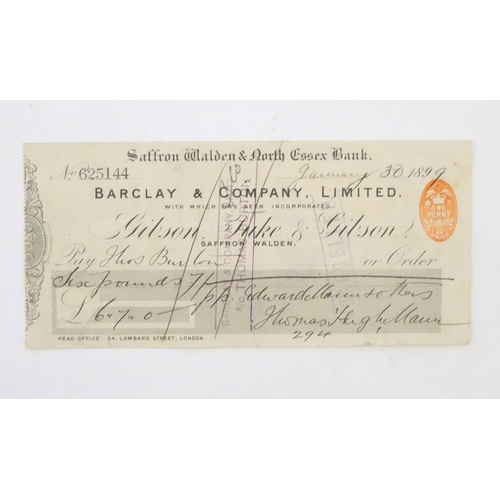 Saffron Walden & North Essex Bank.
No 625144 January 30 1899
BARCLAY & COMPANY, LIMITED.
WITH WHICH HAS BEEN INCORPORATED
Gibson, Tuke & Gibson,
SAFFRON WALDEN.
ONE PENNY
Pay Thos Burton or Order
Six pounds 7/-
pp. Edward Mann & others
£6„7„0
Thomas Hugh Mann
294
HEAD OFFICE: 54, LOMBARD STREET, LONDON.